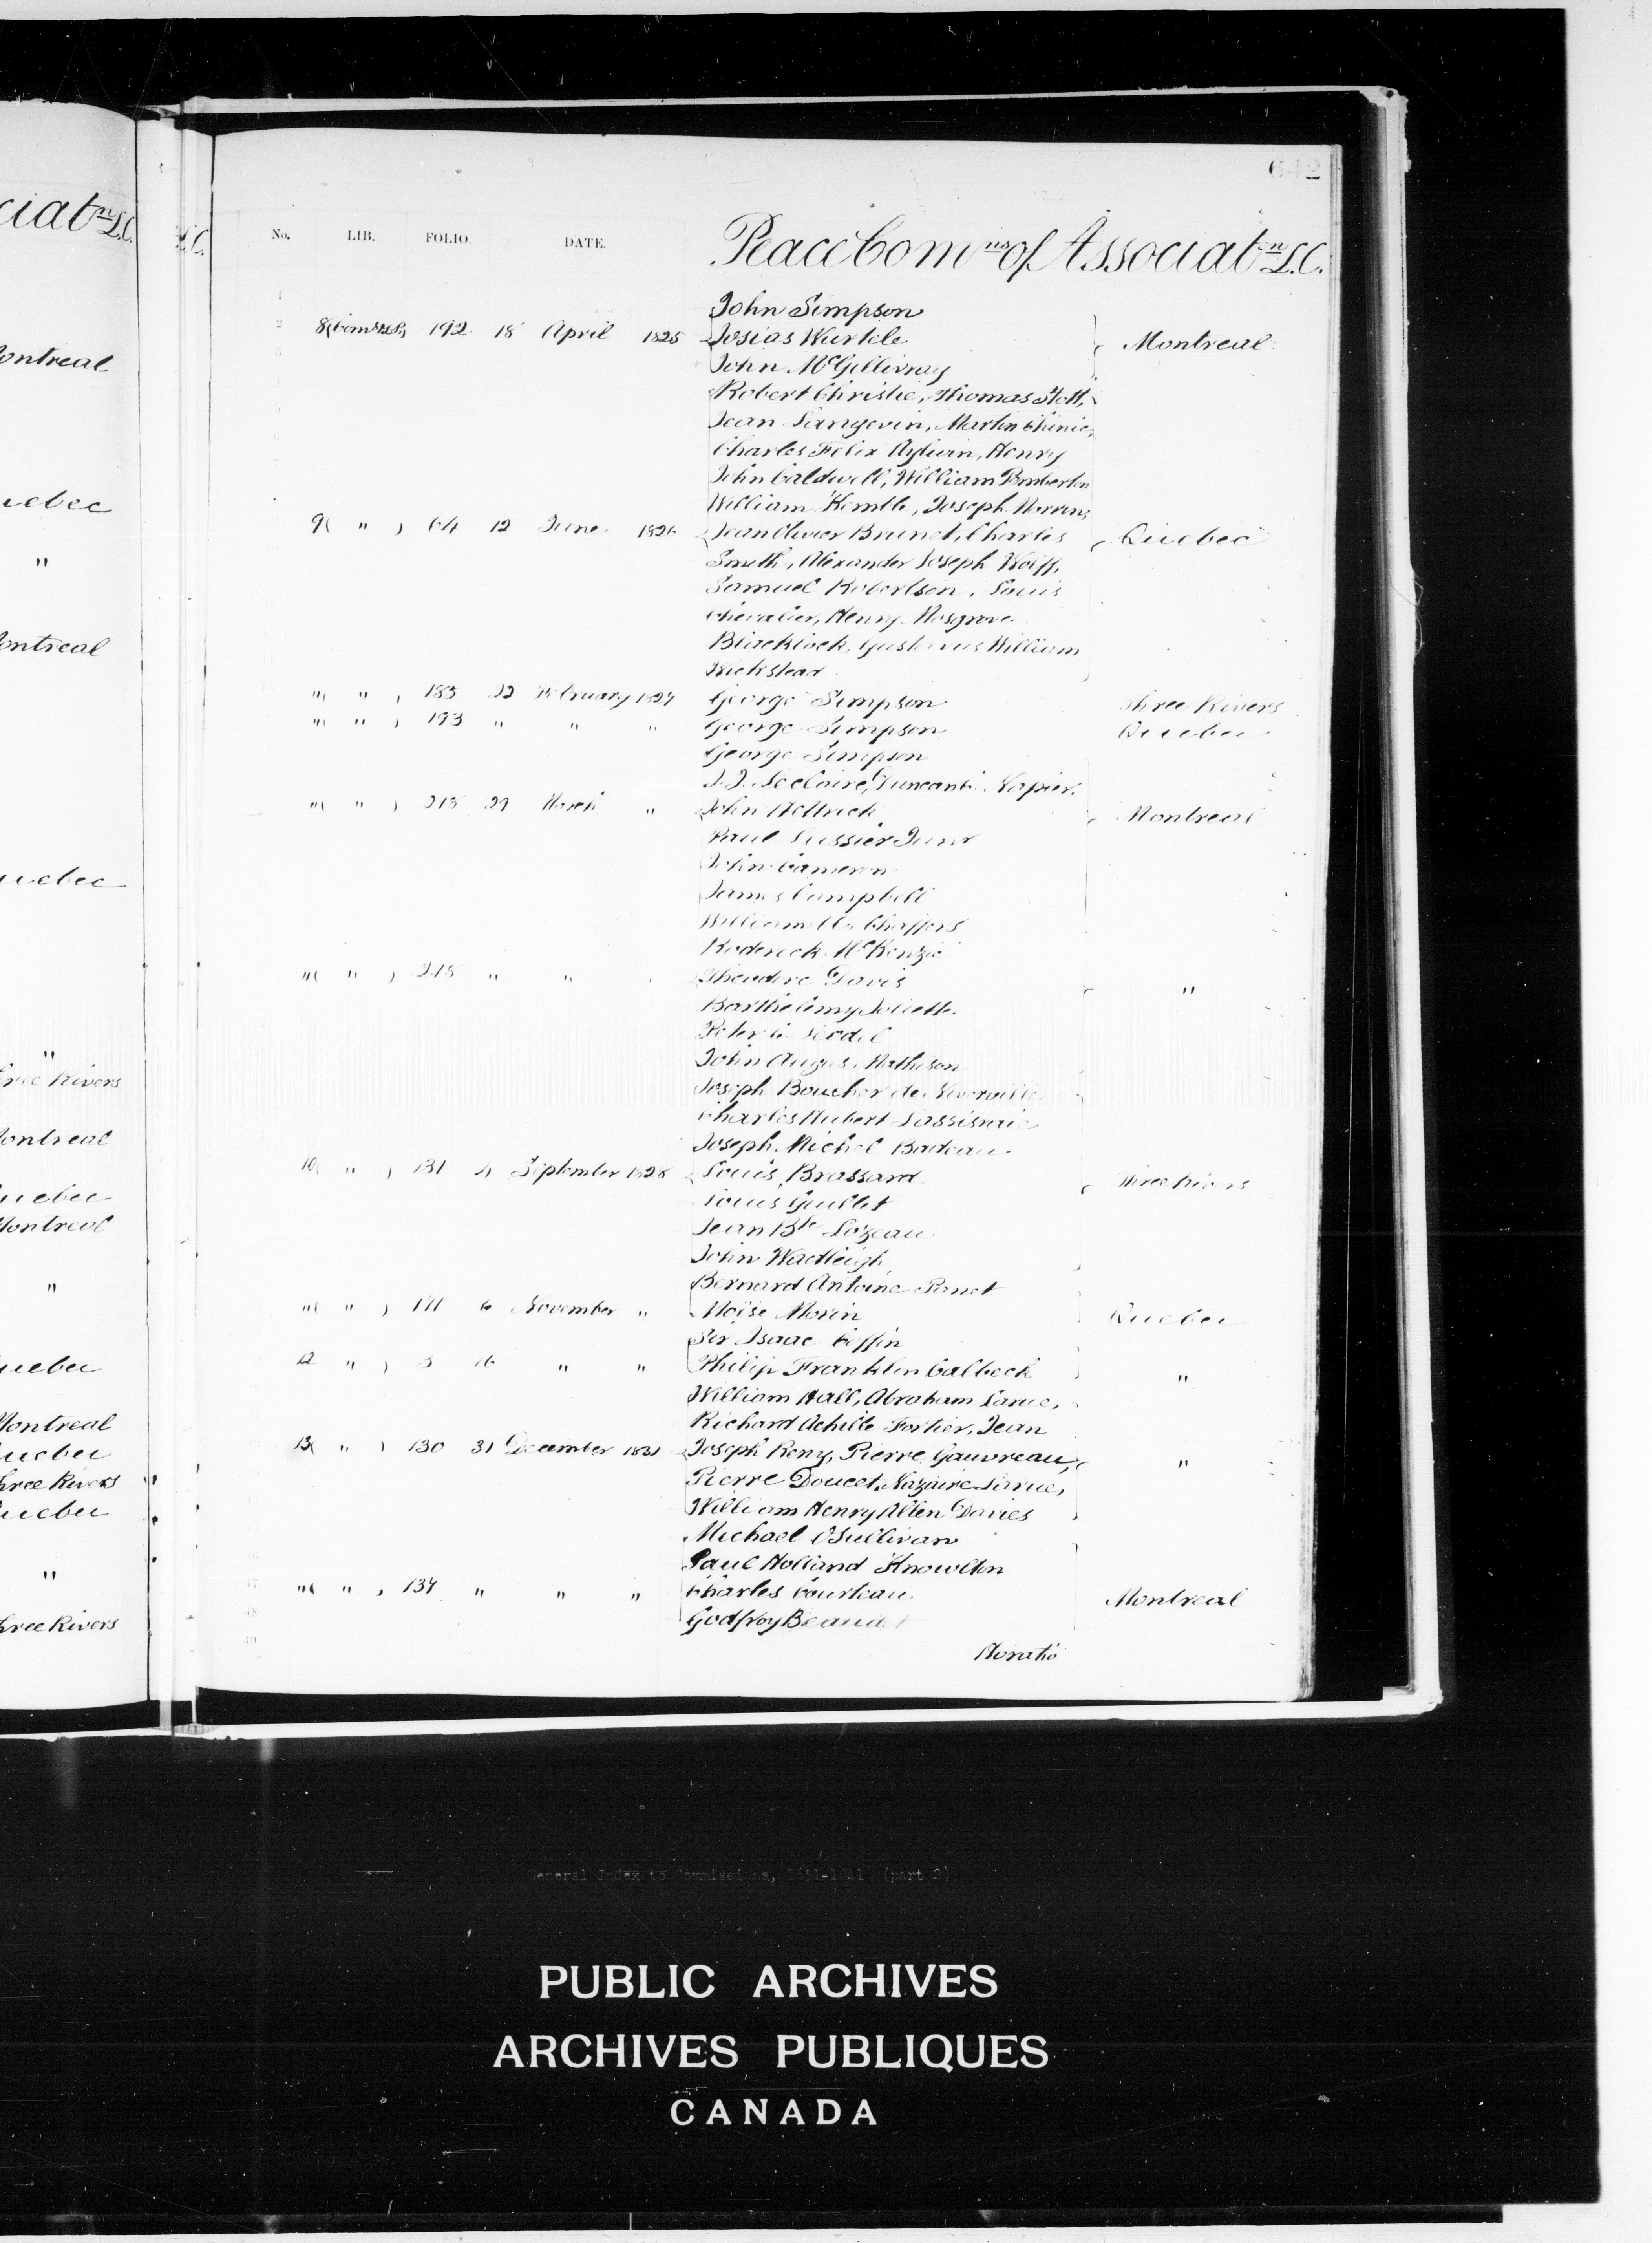 ciatn L.C.
ontreal
uebec
"
ontreal
uebec
"
hree Rivers
ontreal
uebec
Montreal
"
uebec
Montreal
uebec
hree Rivers
uebec
"
hree Rivers
L.C.
642
No. LIB. FOLIO. DATE. Peace Comns of Associatn L.C.
John Simpson
8( ) 192 18 April 1825 Josias Wurtele Montreal
John McGillivray
Robert Christie, Thomas Stott,
Jean Langevin, Martin Chinic,
Charles Felix Aylwin, Henry
John Caldwell, William Pemberton
William Kemble, Joseph Morrin,
9( " ) 64 12 June 1826 Jean Olivier Brunet, Charles Quebec
Smith, Alexander Joseph Wolff,
Samuel Robertson, Louis
Chevalier, Henry Mosgrove
Blacklock, Gustavus William
Wickstead
"( " ) 185 22 February 1827 George Simpson Three Rivers
"( " ) 193 " " " George Simpson Quebec
George Simpson
Leclaire, Duncan Napier
"( " ) 215 29 March " John Montreal
Paul Lussier Junr
John Cameron
James Campbell
William Chaffers
Roderick McKenzie
"( " ) 218 " " Theodore Davis "
Barthélemy Joliette
Peter
John Angus Matheson
Joseph Boucher de Niverville
Charles Hubert Lassiseraie
Joseph Michel Badeau
10( " ) 131 4 September 1828 Louis Brassard Three Rivers
Louis Guillet
Jean Bte Lozeau
John Wadleigh
Bernard Antoine Panet
"( " ) 141 6 November " Moïse Morin Quebec
Sir Isaac Coffin
12 " ) 3 16 " " Philip Franklin Calbeck "
William Hall, Abraham Larue,
Richard Achille Fortier, Jean
13( " ) 130 31 December 1831 Joseph Reny, Pierre Gauvreau, "
Pierre Doucet, Nazaire Larue,
William Henry Allen Davies
Michael O'Sullivan
Paul Holland Knowlton
"( " ) 134 " " " Charles Courteau Montreal
Godfroy Beaudet
Horatio
General Index to Commissions, 1651-1841 (part 2)
PUBLIC ARCHIVES
ARCHIVES PUBLIQUES
CANADA